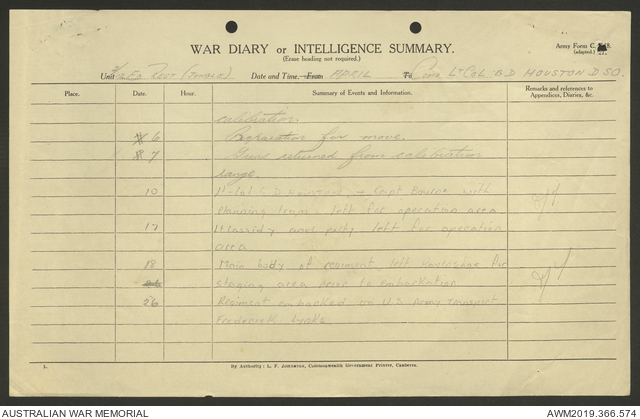 WAR DIARY or INTELLIGENCE SUMMARY.
(Erase heading not required.)
Army Form C.
(adapted.)
Unit Regt (Jungle) Date and Time, From APRIL To Comd Lt Col. B D HOUSTON DSO.
Place. Date. Hour. Summary of Events and Information. Remarks and references to Appendices, Diaries, &c.
calibration.
6 Preparation for move.
7 Guns returned from calibration
range.
10 Capt with
planning team left for operation area
17 Lt Cassidy and party left for operation
area
18 Main body of regiment left for
staging area prior to embarkation
26 Regiment embarked on U.S. Army Transport
Frederick Lykes
1. By Authority: L. F. JOHNSTON, Commonwealth Government Printer, Canberra.
AUSTRALIAN WAR MEMORIAL
AWM2019.366.574